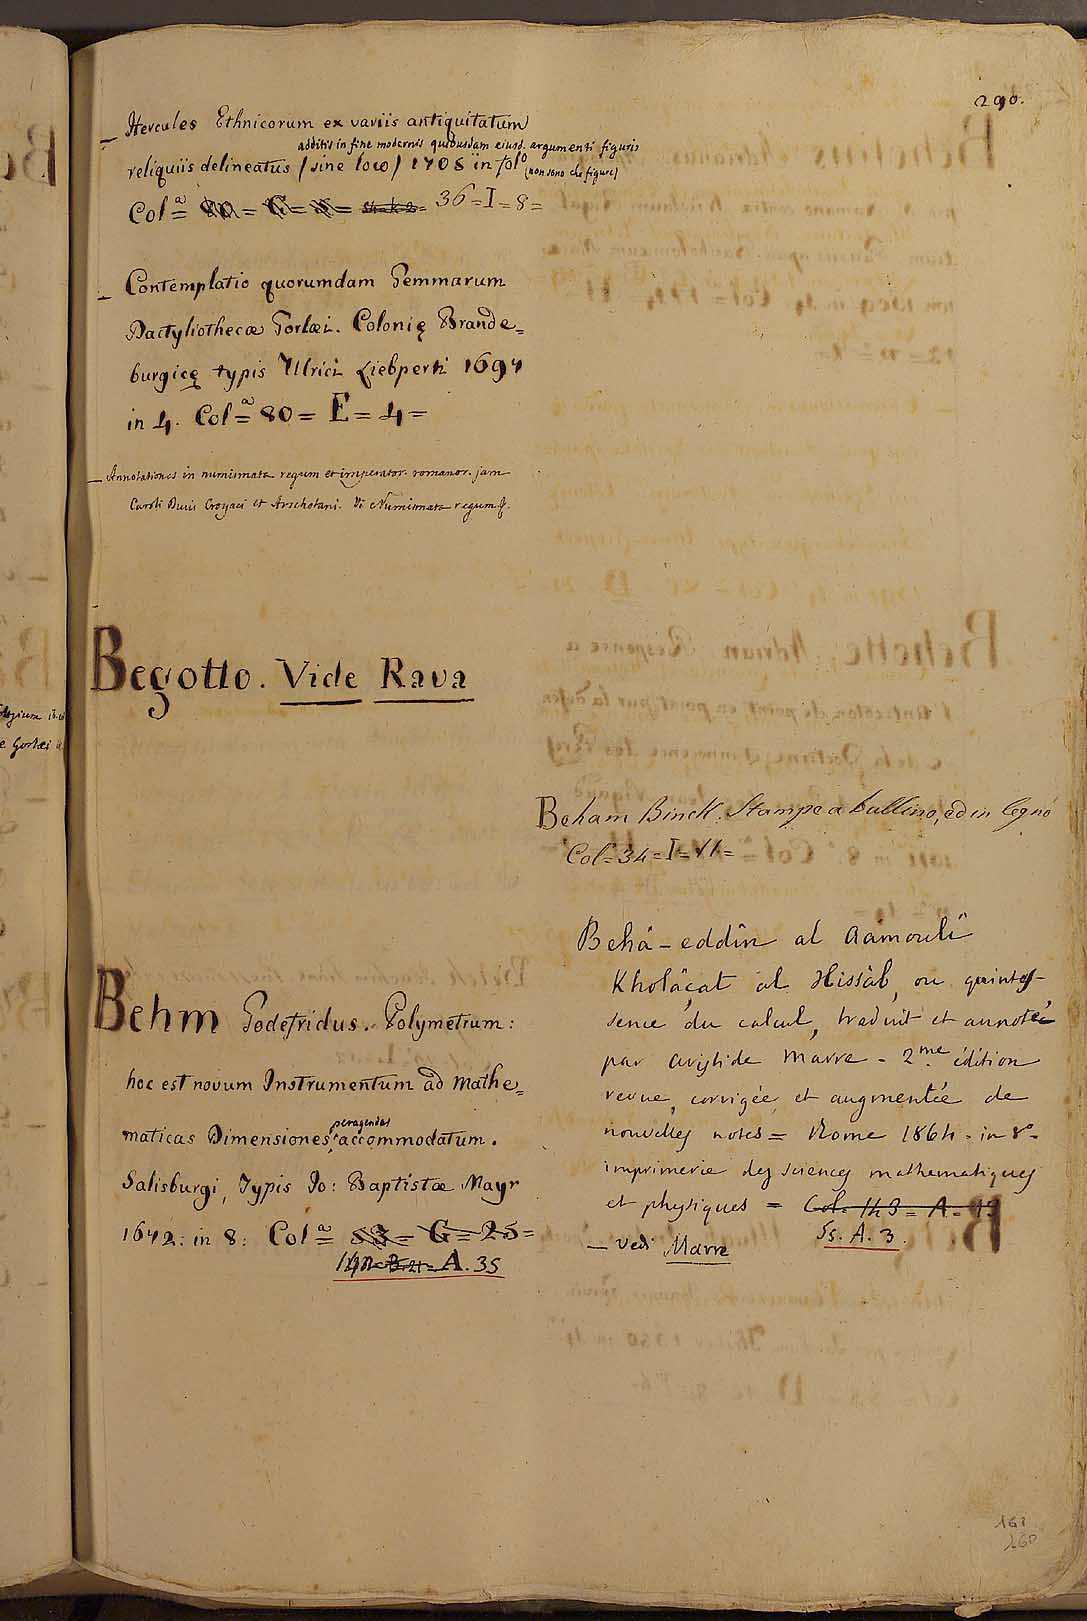 290.
— Hercules Ethnicorum ex variis antiquitatum
additis in fine modernis quibusdam eiusd. argumenti figuris
reliquiis delineatus (sine loco) 1705 in folº
(non sono che figure)
Colª= 80 = G = 36 = I = 8 =
— Contemplatio quorumdam Gemmarum
Dactyliothecæ Gorlæi. Colonię Brande=
burgicę typis Ulrici Liebperti 1697
in 4. Colª= 80 = E = 4 =
— Annotationes in numismata regum et imperator. romanor. jam
Caroli Ducis Croyaci et Arschotani. Vi Numismata regum &.
Begotto. Vide Rava
Behm Godefridus. Polymetrum:
hoc est novum Instrumentum ad Mathe=
peragendas
maticas Dimensiones, accommodatum.
Salisburgi, Typis Jo: Baptistæ Mayr
1672: in 8: Colª= 53 = G = 25 =
A. 35
Beham Binck. Stampe a bullino, ed in legno
Col= 34 = I = 11 =
Behâ-eddîn al Aâmoulî
Kholâçat al Hissâb, ou quintes-
sence du calcul, traduit et annoté
par Aristide Marre - 2me édition
revue, corrigée et augmentée de
nouvelles notes = Rome 1864. in 8º.
imprimerie des sciences mathematiques
et physiques = Col. 143 = A = 19
Ss. A. 3.
— vedi Marre
161
160